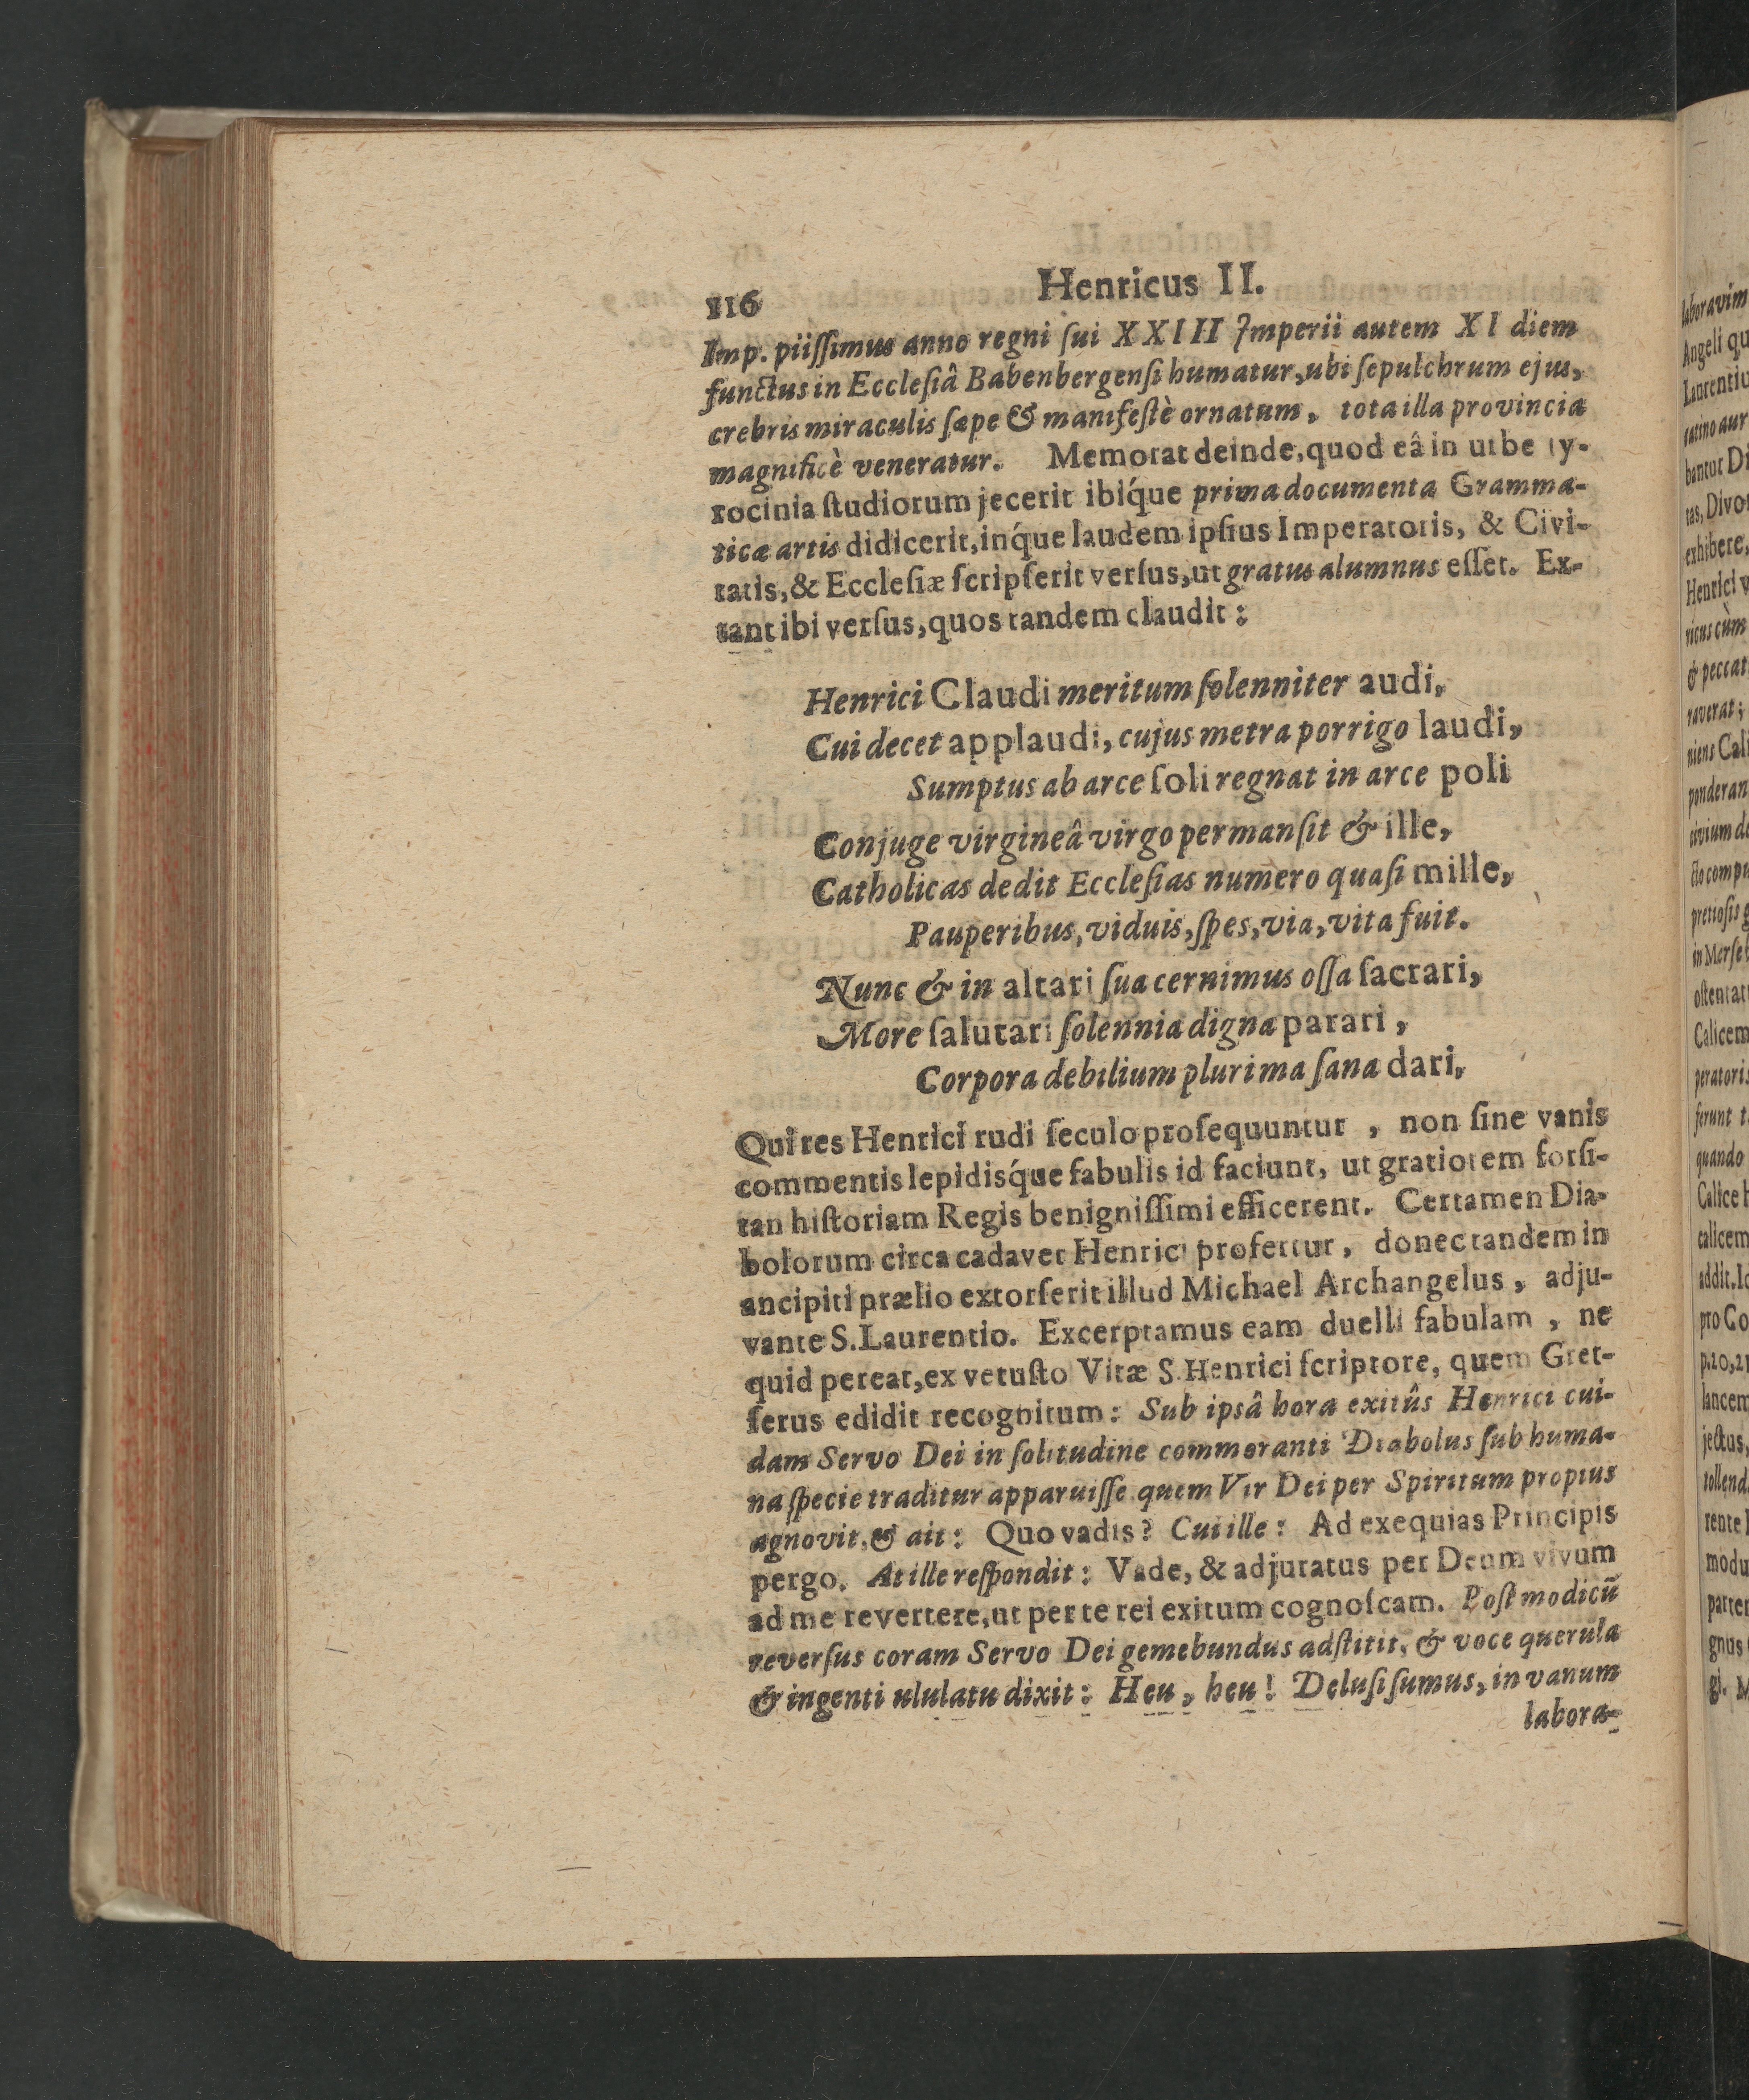 116 Henricus II.
Imp. piiſſimus anno regni ſui XXIII Imperii autem XI diem
functus in Eccleſiâ Babenbergenſi humatur, ubi ſepulchrum ejus,
crebris miraculis ſæpe & manifeſtè ornatum, tota illa provincia
magnificè veneratur. Memorat deinde, quod eâ in urbe ty-
rocinia ſtudiorum jecerit ibíque prima documenta Gramma-
ticæ artis didicerit, inque laudem ipſius Imperatoris, & Civi-
tatis, & Eccleſiæ ſcripſerit verſus, ut gratus alumnus eſſet. Ex-
tant ibi verſus, quos tandem claudit:
Henrici Claudi meritum ſolenniter audi,
Cui decet applaudi, cujus metra porrigo laudi,
Sumptus ab arce ſoli regnat in arce poli
Conjuge virgineâ virgo permanſit & ille,
Catholicas dedit Eccleſias numero quaſi mille,
Pauperibus, viduis, ſpes, via, vita fuit.
Nunc & in altari ſua cernimus oſſa ſacrari,
More ſalutari ſolennia digna parari,
Corpora debilium plurima ſana dari,
Qui res Henrici rudi ſeculo proſequuntur, non ſine vanis
commentis lepidisq́ue fabulis id faciunt, ut gratiorem forſi-
tan hiſtoriam Regis benigniſſimi efficerent. Certamen Dia-
bolorum circa cadaver Henrici profertur, donec tandem in
ancipiti prælio extorſerit illud Michael Archangelus, adju-
vante S. Laurentio. Excerptamus eam duelli fabulam, ne
quid pereat, ex vetuſto Vitæ S. Henrici ſcriptore, quem Gret-
ſerus edidit recognitum: Sub ipſâ hora exitûs Henrici cui-
dam Servo Dei in ſolitudine commoranti Diabolus ſub huma-
na ſpecie traditur apparuiſſe quem Vir Dei per Spiritum propius
agnovit, & ait: Quo vadis? Cui ille: Ad exequias Principis
pergo. At ille reſpondit: Vade, & adjuratus per Deum vivum
ad me revertere, ut per te rei exitum cognoſcam. Poſt modicū
reverſus coram Servo Dei gemebundus adſtitit, & voce querula
& ingenti ululatu dixit: Heu, heu! Deluſi ſumus, in vanum
labora-